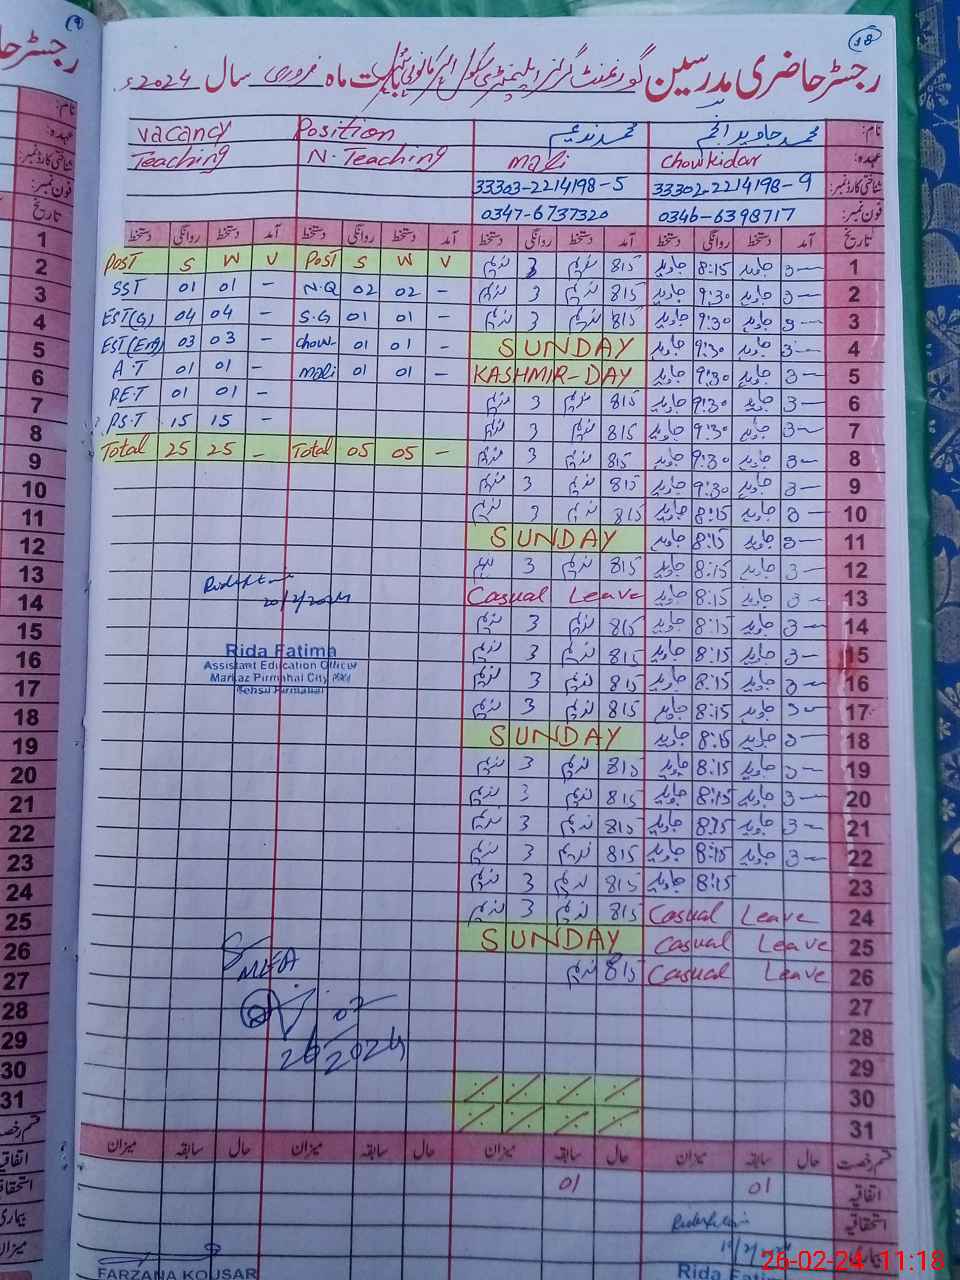 18
رجسٹر حاضری مدرسین گورنمنٹ گرلز ایلیمنٹری سکول بابت ماہ فروری سال 2024ء
vacancy Position محمد ندیم محمد جاوید انجم نام:
Teaching N. Teaching mali chowkidar عہدہ:
33303-2214198-5 33302-2214198-9 شناختی کارڈ نمبر:
0347-6737320 0346-6398717 فون نمبر:
دستخط روانگی دستخط آمد دستخط روانگی دستخط آمد دستخط روانگی دستخط آمد دستخط روانگی دستخط آمد تاریخ
POST S W V POST S W V ندیم 3 ندیم 815 جاوید 8:15 جاوید 3— 1
SST 01 01 – N.Q 02 02 – ندیم 3 ندیم 815 جاوید 9:30 جاوید 3— 2
EST(G) 04 04 – S.G 01 01 – ندیم 3 ندیم 815 جاوید 9:30 جاوید 3— 3
EST(Eng) 03 03 – chow- 01 01 – SUNDAY جاوید 9:30 جاوید 3— 4
A.T 01 01 – mali 01 01 – KASHMIR-DAY جاوید 9:30 جاوید 3— 5
PE.T 01 01 – ندیم 3 ندیم 815 جاوید 9:30 جاوید 3— 6
PS.T 15 15 – ندیم 3 ندیم 815 جاوید 9:30 جاوید 3— 7
Total 25 25 – Total 05 05 – ندیم 3 ندیم 815 جاوید 9:30 جاوید 3— 8
ندیم 3 ندیم 815 جاوید 9:30 جاوید 3— 9
ندیم 3 ندیم 815 جاوید 8:15 جاوید 3— 10
SUNDAY جاوید 8:15 جاوید 3— 11
ندیم 3 ندیم 815 جاوید 8:15 جاوید 3— 12
Casual Leave جاوید 8:15 جاوید 3— 13
20/2/2024
ندیم 3 ندیم 815 جاوید 8:15 جاوید 3— 14
ندیم 3 ندیم 815 جاوید 8:15 جاوید 3— 15
ندیم 3 ندیم 815 جاوید 8:15 جاوید 3— 16
ندیم 3 ندیم 815 جاوید 8:15 جاوید 3— 17
Rida Fatima
Assistant Education Officer
Markaz Pirmahal City
Tehsil Pirmahal
SUNDAY جاوید 8:15 جاوید 3— 18
ندیم 3 ندیم 815 جاوید 8:15 جاوید 3— 19
ندیم 3 ندیم 815 جاوید 8:15 جاوید 3— 20
ندیم 3 ندیم 815 جاوید 8:15 جاوید 3— 21
ندیم 3 ندیم 815 جاوید 8:15 جاوید 3— 22
ندیم 3 ندیم 815 جاوید 8:15 23
ندیم 3 ندیم 815 Casual Leave 24
SUNDAY Casual Leave 25
ندیم 815 Casual Leave 26
MEA
26/02/2024
27
28
29
30
31
میزان سابقہ حال میزان سابقہ حال میزان سابقہ حال میزان سابقہ حال قسم رخصت
01 01 اتفاقیہ
استحقاقیہ
FARZANA KOUSAR
Rida Fati
نام:
عہدہ:
شناختی کارڈ نمبر:
فون نمبر:
تاریخ
1
2
3
4
5
6
7
8
9
10
11
12
13
14
15
16
17
18
19
20
21
22
23
24
25
26
27
28
29
30
31
26-02-24 11:18